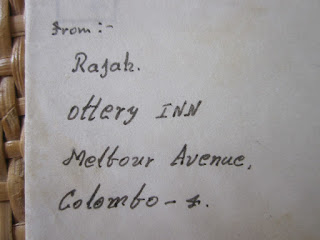 From:-
Rajah.
Ottery INN
Melbour Avenue,
Colombo - 4.